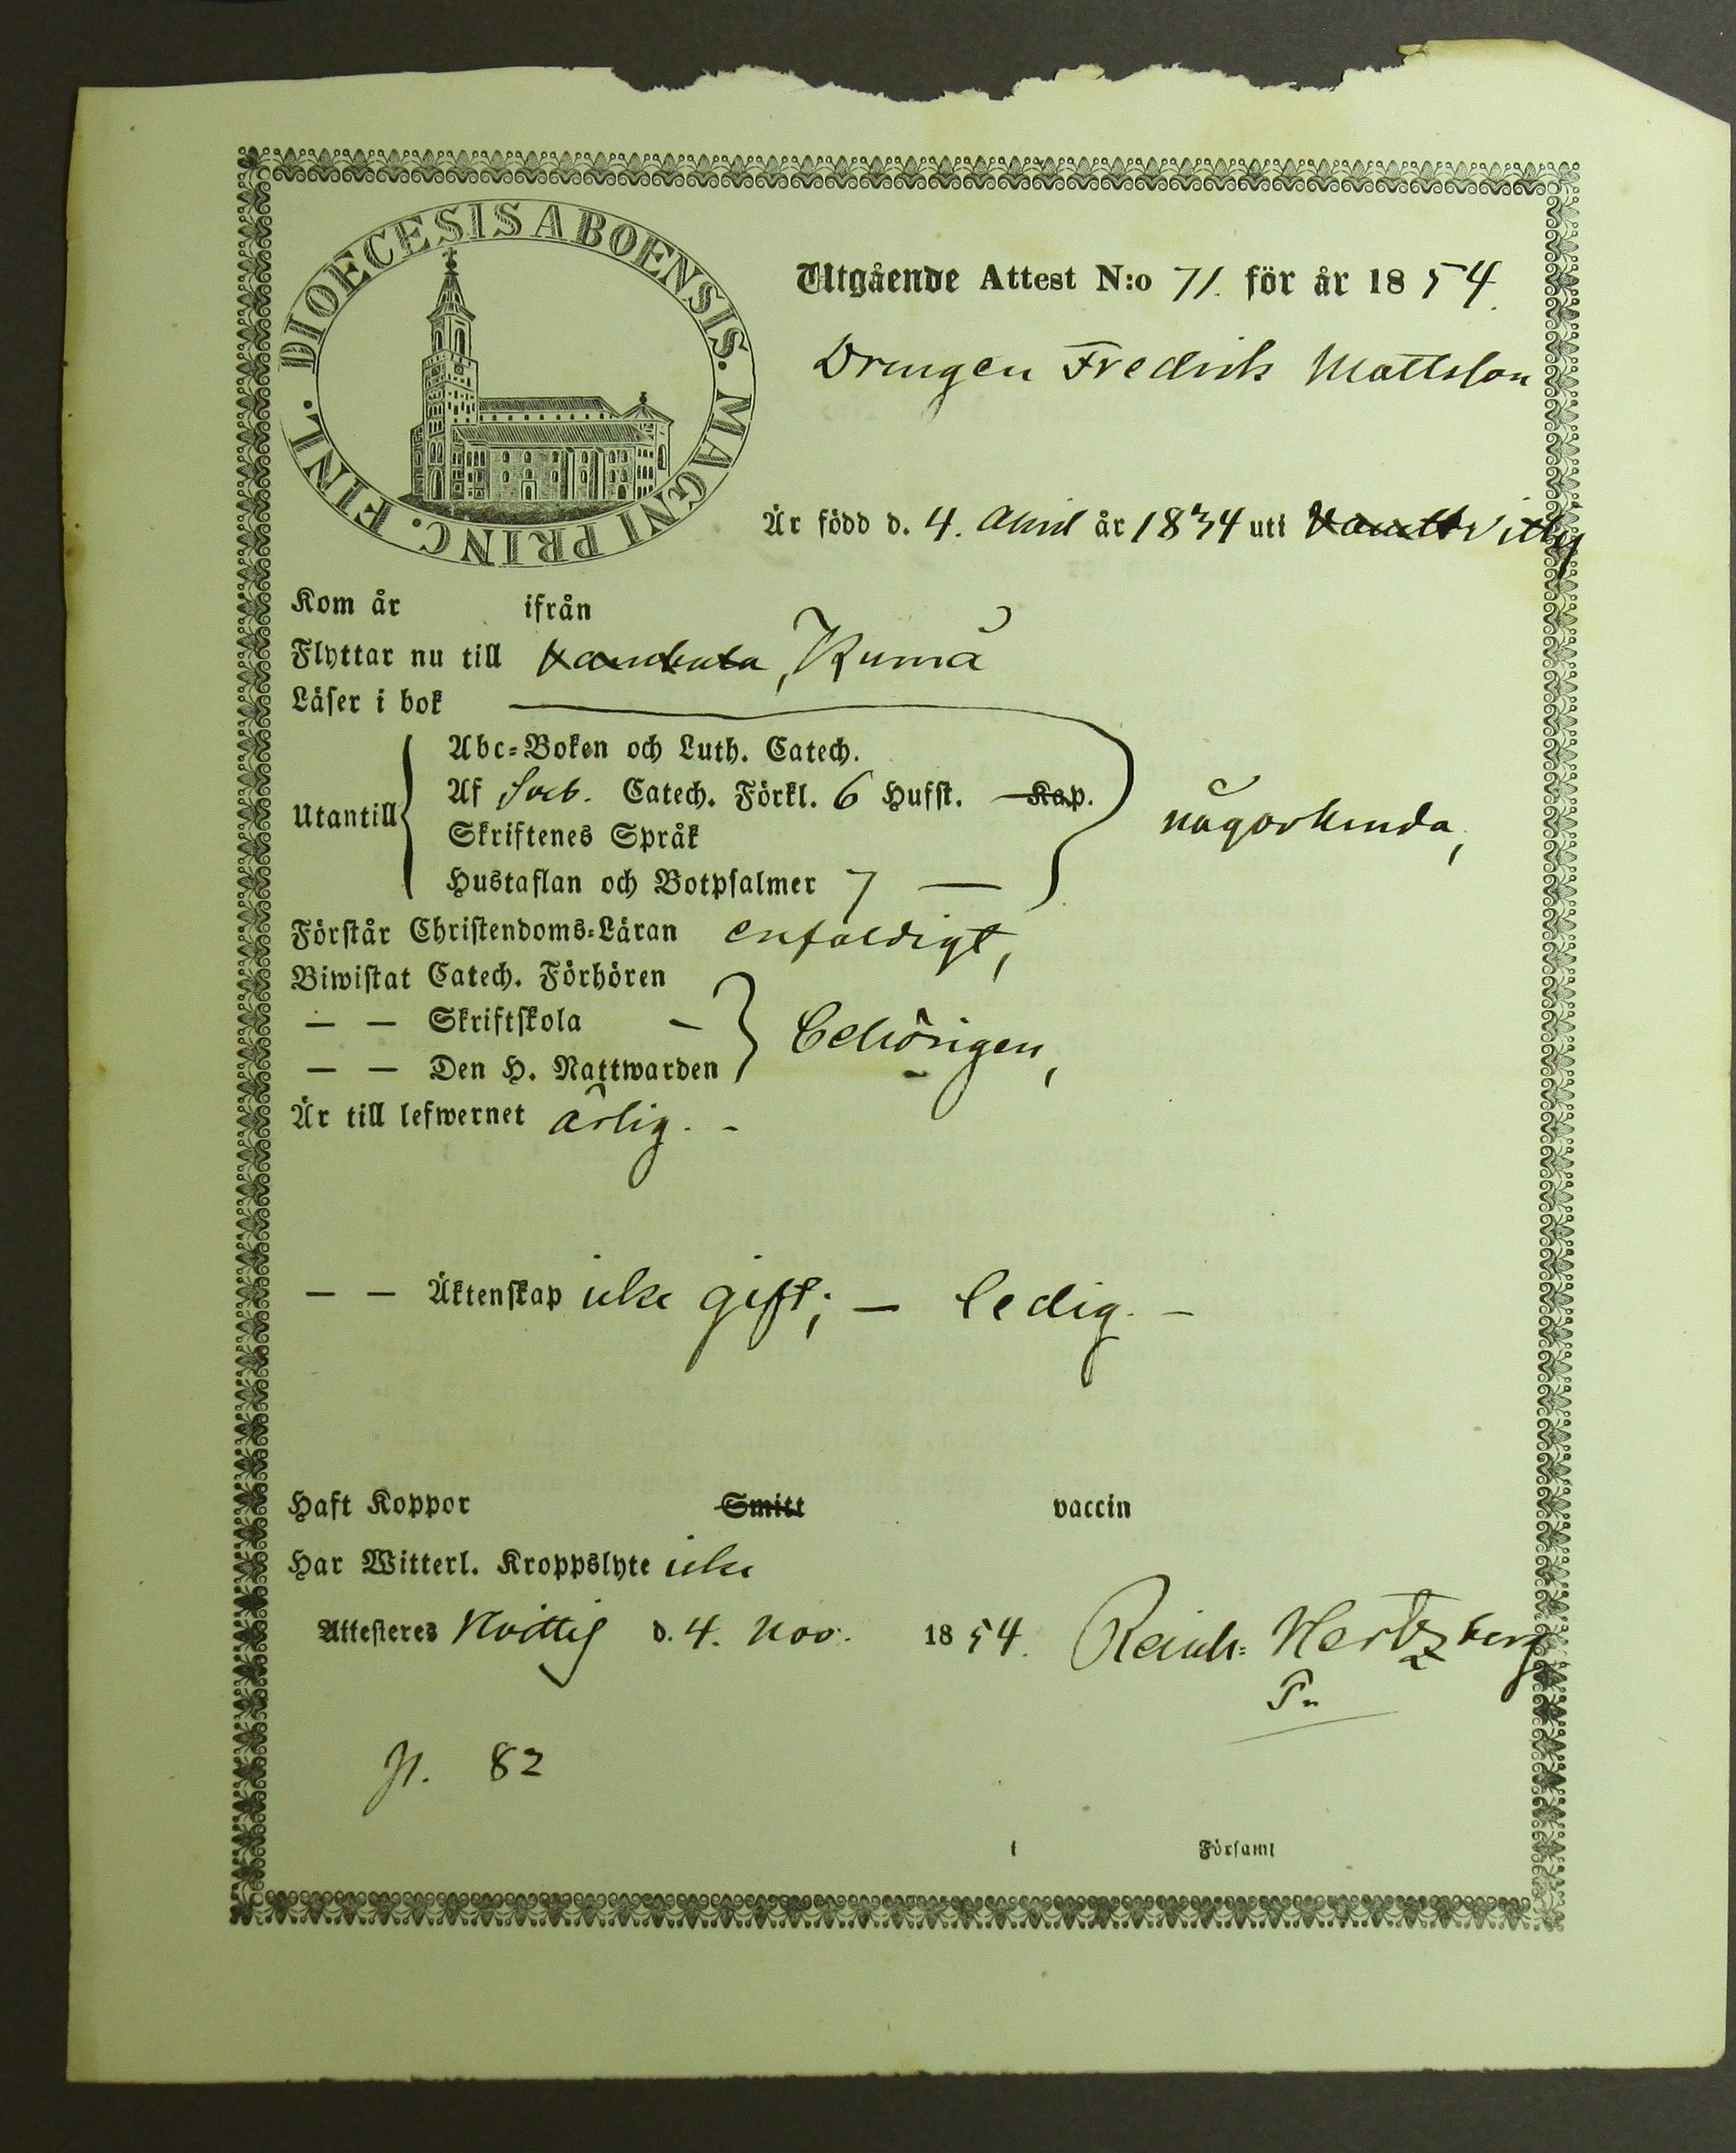 DIOECESIS ABOENSIS. MAGNI PRINC. FINL.
Utgående Attest N:o 71. för år 1854.
Drengen Fredrik Mattsson
Är född d. 4. April år 1834 uti
Kom år ifrån
Flyttar nu till Kumå
Läser i bok
Utantill
Abc-Boken och Luth. Catech.
Af Sveb. Catech. Förkl. 6 Hufst. Kap.
Skriftenes Språk
Hustaflan och Botpsalmer 7 —
någorlunda,
Förstår Christendoms-Läran enfaldigt,
Biwistat Catech. Förhören
— — Skriftskola -
— — Den H. Nattwarden
behörigen,
Är till lefwernet ärlig. -
— — Äktenskap icke gift; — ledig. -
Haft Koppor Smitt vaccin
Har Witterl. Kroppslyte icke
Attesteres Hvittis d. 4. Nov. 1854. Reinh: Hertzberg
P. 82
i Församl